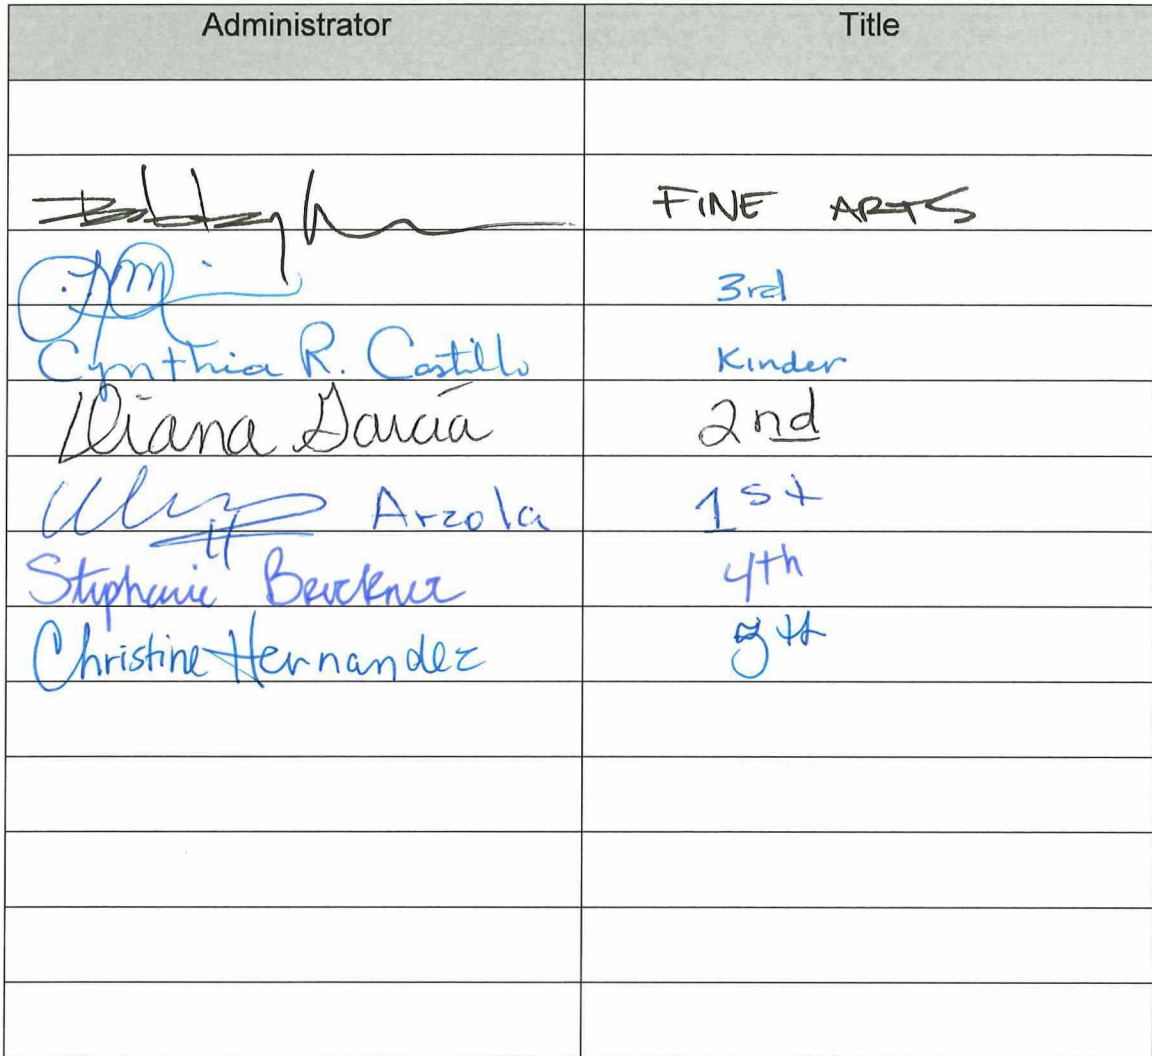 Administrator Title
Bobby FINE ARTS
3rd
Cynthia R. Castillo Kinder
Diana Garcia 2nd
Arzola 1st
Stephanie Bruckner 4th
Christine Hernandez 5th